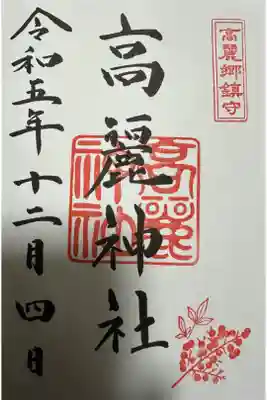 高麗郷鎮守
高麗神社
高麗神社
令和五年十二月四日